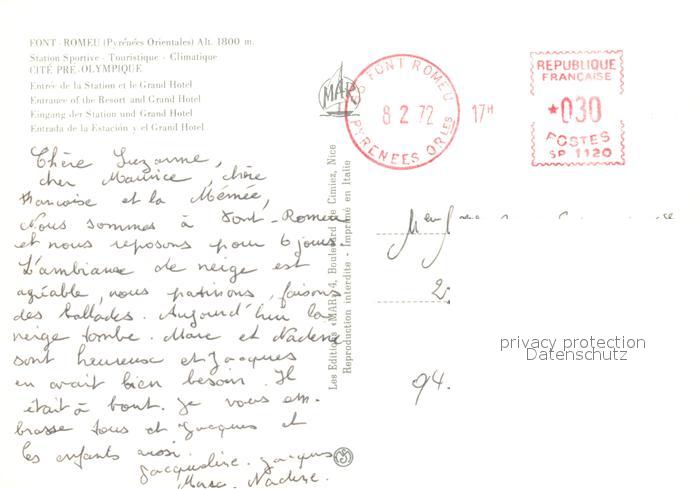 FONT-ROMEU (Pyrénées Orientales) Alt. 1800 m.
Station Sportive - Touristique - Climatique
CITÉ PRÉ-OLYMPIQUE
Entrée de la Station et le Grand Hotel
Entrance of the Resort and Grand Hotel
Eingang der Station und Grand Hotel
Entrada de la Estación y el Grand Hotel
MAR
FONT ROMEU
8 2 72
17H
PYRENEES ORLES
REPUBLIQUE
FRANÇAISE
*030
POSTES
SP 1120
Chère Suzanne,
cher Maurice, chère
Françoise et la Mémée,
Nous sommes à Font-Romeu
et nous reposons pour 6 jours.
L'ambiance de neige est
agréable, nous patinons, faisons
des ballades. Aujourd'hui la
neige tombe. Marc et Nadine
sont heureuse et Jacques
en avait bien besoin. Il
était à bout. Je vous em-
brasse tous et Jacques et
les enfants aussi.
Jacqueline. Jacques
Marc. Nadine.
Les Editions «MAR» 4, Boulevard de Cimiez, Nice
Reproduction interdite - Imprimé en Italie
2
94.
privacy protection
Datenschutz